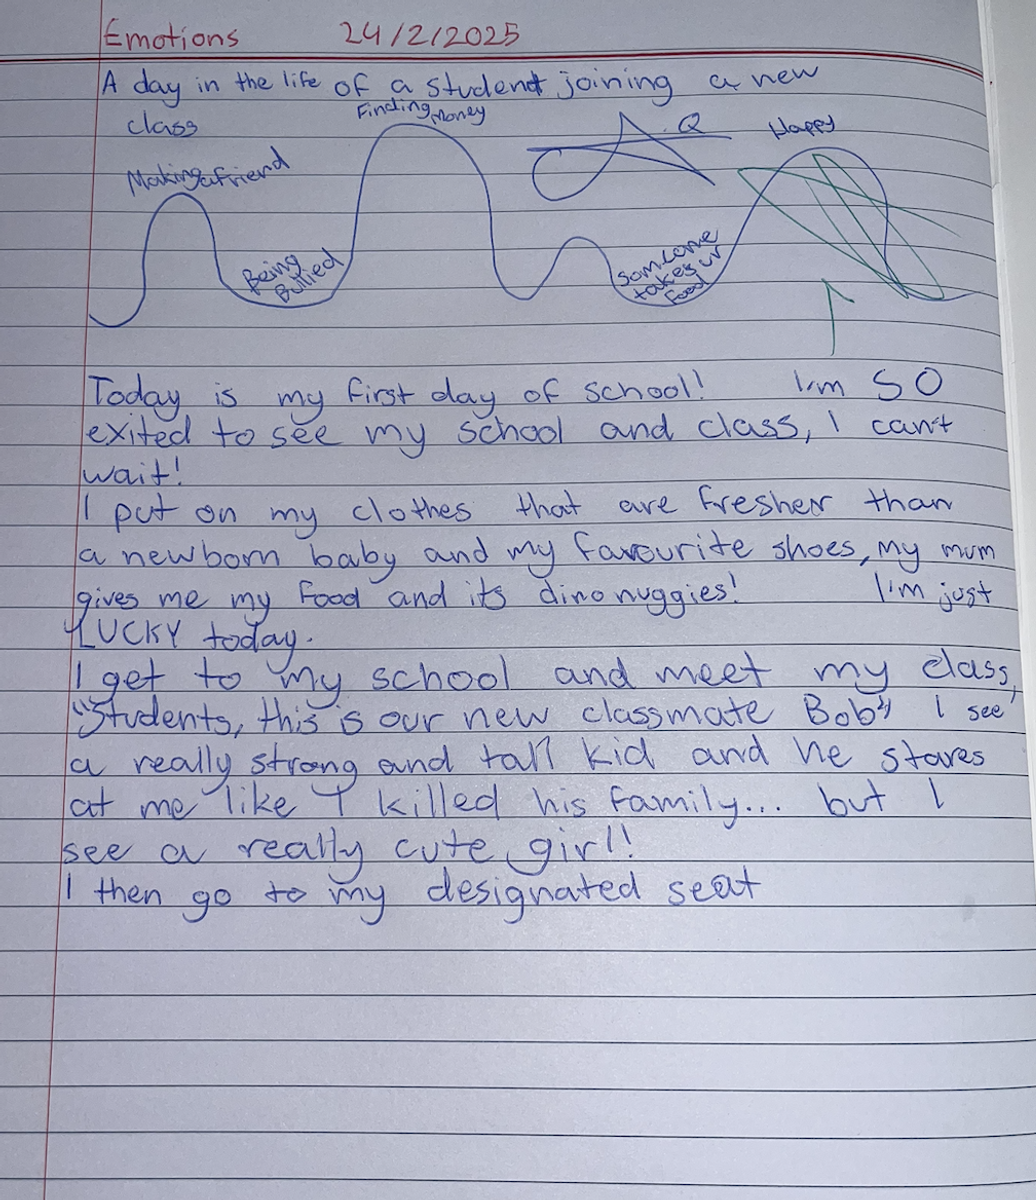 Emotions 24/2/2025
A day in the life of a student joining a new
class
Finding Money
Q
Happy
Making a friend
Being
Bullied
Someone
takes ur
food
Today is my first day of school! I'm SO
exited to see my school and class, I can't
wait!
I put on my clothes that are fresher than
a newborn baby and my favourite shoes, my mum
gives me my food and its dino nuggies! I'm just
LUCKY today.
I get to my school and meet my class,
"Students, this is our new classmate Bob" I see
a really strong and tall kid and he stares
at me like I killed his family... but I
see a really cute girl!
I then go to my designated seat